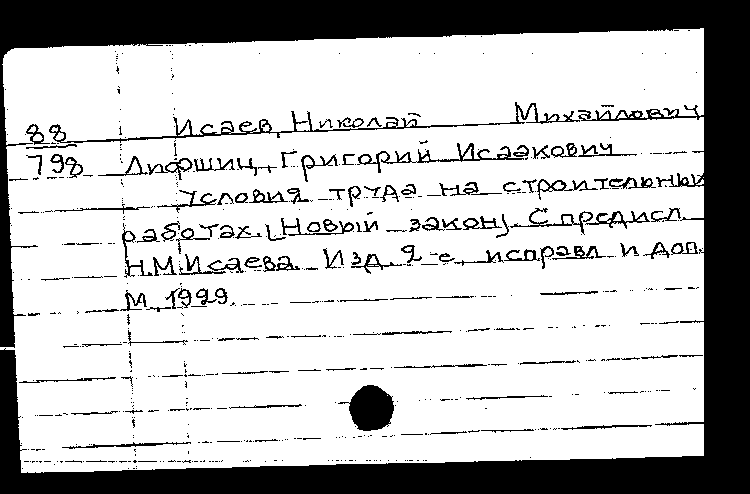 88 Исаев, Николай Михайлович
798 Лифшиц, Григорий Исаакович
Условия труда на строительны
работах. [Новый закон]. С предисл
Н.М.Исаева. Изд. 2-е, исправл и доп.
М, 1929.